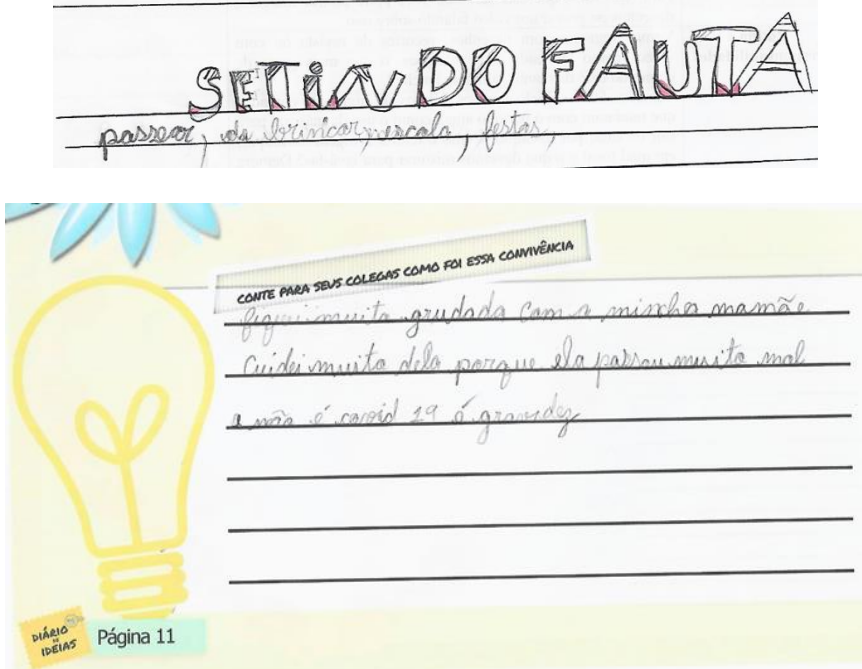 SETINDO FAUTA
passear, da brincar, escola, festas,
CONTE PARA SEUS COLEGAS COMO FOI ESSA CONVIVÊNCIA
fiquei muito grudada com a minha mamãe
Cuidei muito dela porque ela passou muito mal
a não é covid 19 é gravidez
DIÁRIO DE IDEIAS
Página 11